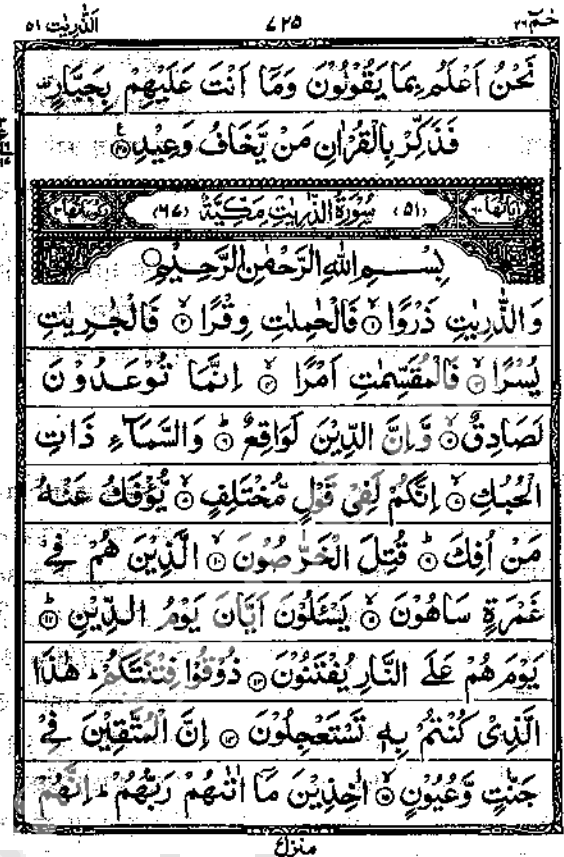 حٰمٓ ٢٦ ٧٢٥ الذّٰرِيٰت ٥١
نَحْنُ اَعْلَمُ بِمَا يَقُوْلُوْنَ وَمَاۤ اَنْتَ عَلَيْهِمْ بِجَبَّارٍ
فَذَكِّرْ بِالْقُرْاٰنِ مَنْ يَّخَافُ وَعِيْدِ ۝۴۵
اٰيَاتُهَا ٦٠ (٥١) سُوْرَةُ الذّٰرِيٰتِ مَكِّيَّةٌ (٦٧) رُكُوْعَاتُهَا ٣
بِسْمِ اللهِ الرَّحْمٰنِ الرَّحِيْمِ
وَالذّٰرِيٰتِ ذَرْوًا ۝۱ۙ فَالْحٰمِلٰتِ وِقْرًا ۝۲ۙ فَالْجٰرِيٰتِ
يُسْرًا ۝۳ۙ فَالْمُقَسِّمٰتِ اَمْرًا ۝۴ۙ اِنَّمَا تُوْعَدُوْنَ
لَصَادِقٌ ۝۵ۙ وَّاِنَّ الدِّيْنَ لَوَاقِعٌ ۝۶ؕ وَالسَّمَآءِ ذَاتِ
الْحُبُكِ ۝۷ۙ اِنَّكُمْ لَفِيْ قَوْلٍ مُّخْتَلِفٍ ۝۸ۙ يُّؤْفَكُ عَنْهُ
مَنْ اُفِكَ ۝۹ؕ قُتِلَ الْخَرّٰصُوْنَ ۝۱۰ۙ الَّذِيْنَ هُمْ فِيْ
غَمْرَةٍ سَاهُوْنَ ۝۱۱ۙ يَسْـَٔلُوْنَ اَيَّانَ يَوْمُ الدِّيْنِ ۝۱۲ؕ
يَوْمَ هُمْ عَلَى النَّارِ يُفْتَنُوْنَ ۝۱۳ ذُوْقُوْا فِتْنَتَكُمْ ؕ هٰذَا
الَّذِيْ كُنْتُمْ بِهٖ تَسْتَعْجِلُوْنَ ۝۱۴ اِنَّ الْمُتَّقِيْنَ فِيْ
جَنّٰتٍ وَّعُيُوْنٍ ۝۱۵ۙ اٰخِذِيْنَ مَاۤ اٰتٰىهُمْ رَبُّهُمْ ؕ اِنَّهُمْ
منزل